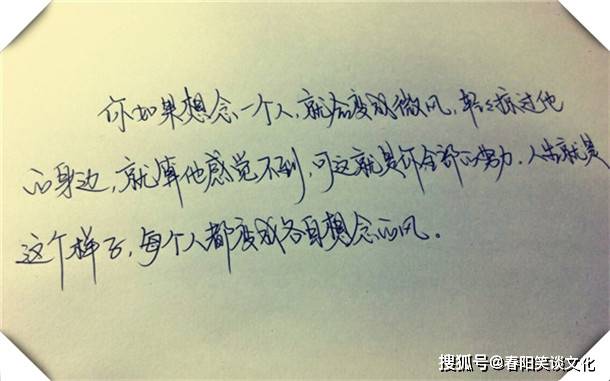 你如果想念一个人,就会变成微风,轻轻掠过他
的身边,就算他感觉不到,可这就是你全部的努力.人生就是
这个样子,每个人都变成各自想念的风。
搜狐号@春阳笑谈文化